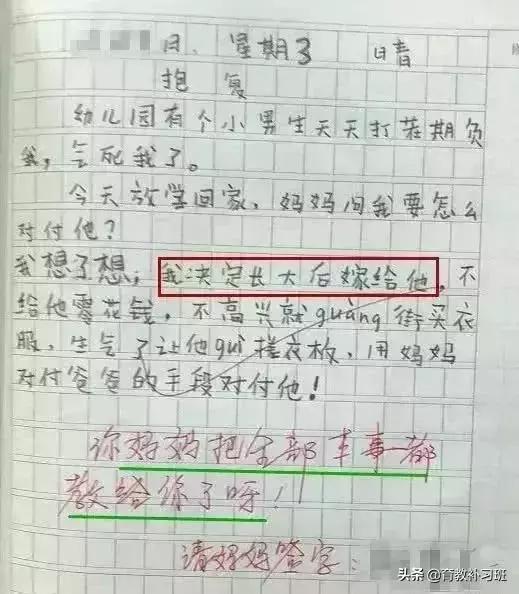 日、星期3 晴
抱复
幼儿园有个小男生天天打茬期负
我，气死我了。
今天放学回家，妈妈问我要怎么
对付他？
我想了想，我决定长大后嫁给他，不
给他零花钱，不高兴就guàng街买衣
服，生气了让他guì搓衣板，用妈妈
对付爸爸的手段对付他！
你妈妈把全部本事都
教给你了呀！
请妈妈签字：
头条 @育教补习班